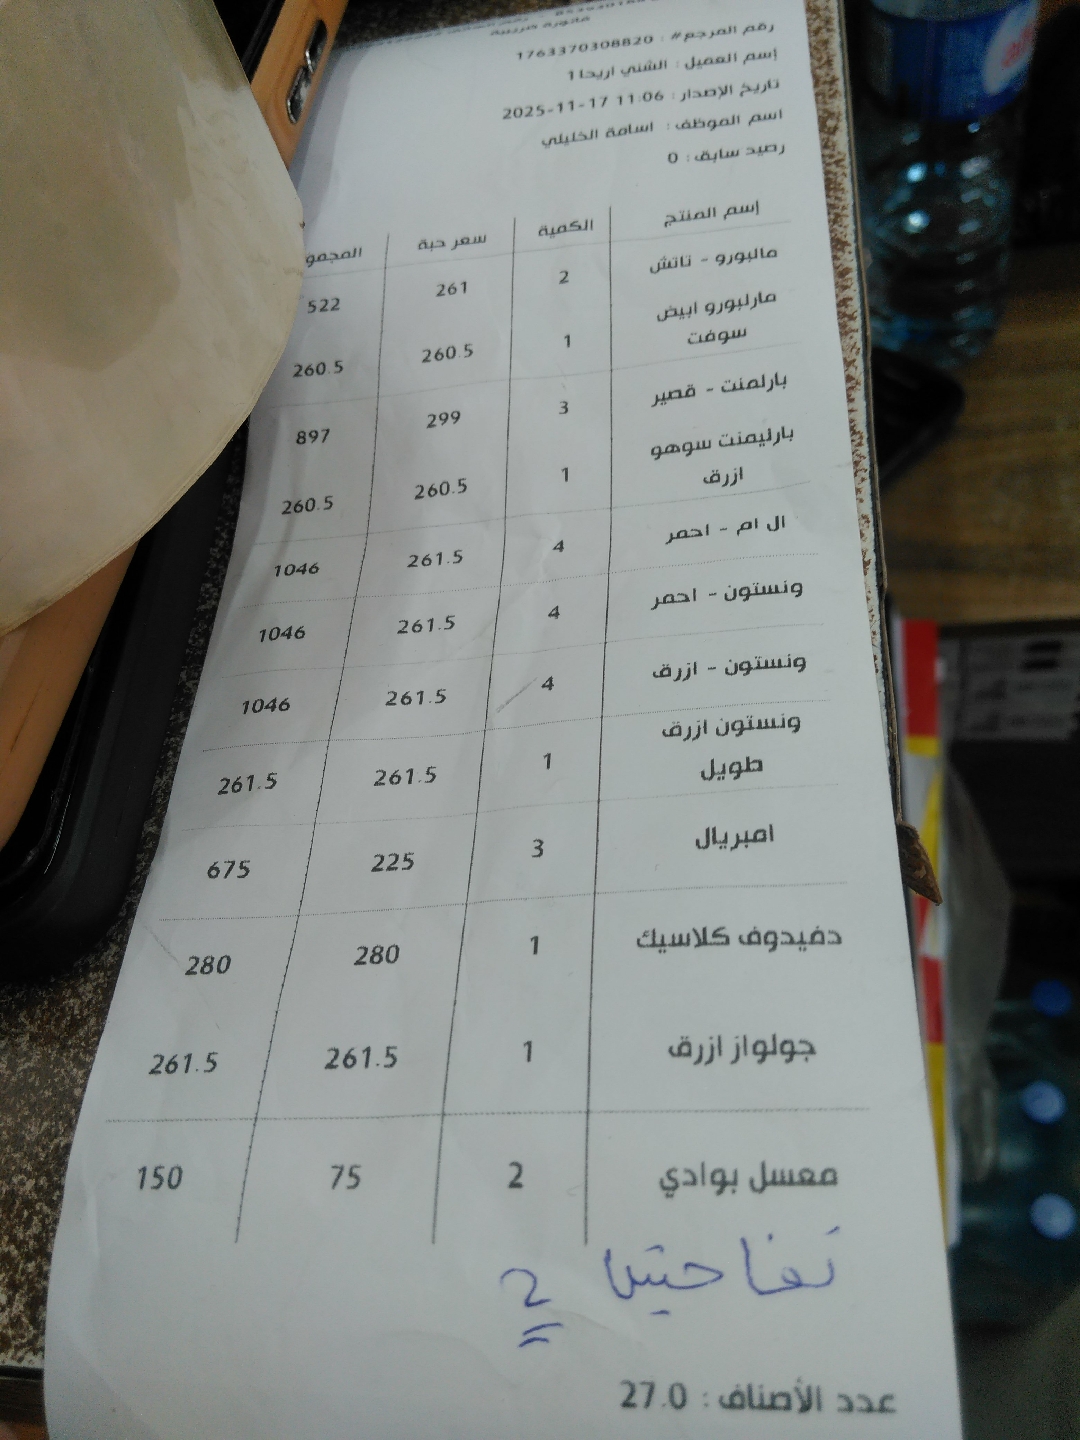 فاتورة ضريبية
رقم المرجع# : 1763370308820
إسم العميل : الشني اريحا1
تاريخ الإصدار : 2025-11-17 11:06
اسم الموظف : اسامة الخليلي
رصيد سابق : 0
إسم المنتج الكمية سعر حبة المجمو
مالبورو - تاتش 2 261 522
مارلبورو ابيض سوفت 1 260.5 260.5
بارلمنت - قصير 3 299 897
بارليمنت سوهو ازرق 1 260.5 260.5
ال ام - احمر 4 261.5 1046
ونستون - احمر 4 261.5 1046
ونستون - ازرق 4 261.5 1046
ونستون ازرق طويل 1 261.5 261.5
امبريال 3 225 675
دفيدوف كلاسيك 1 280 280
جولواز ازرق 1 261.5 261.5
معسل بوادي 2 75 150
2
عدد الأصناف : 27.0